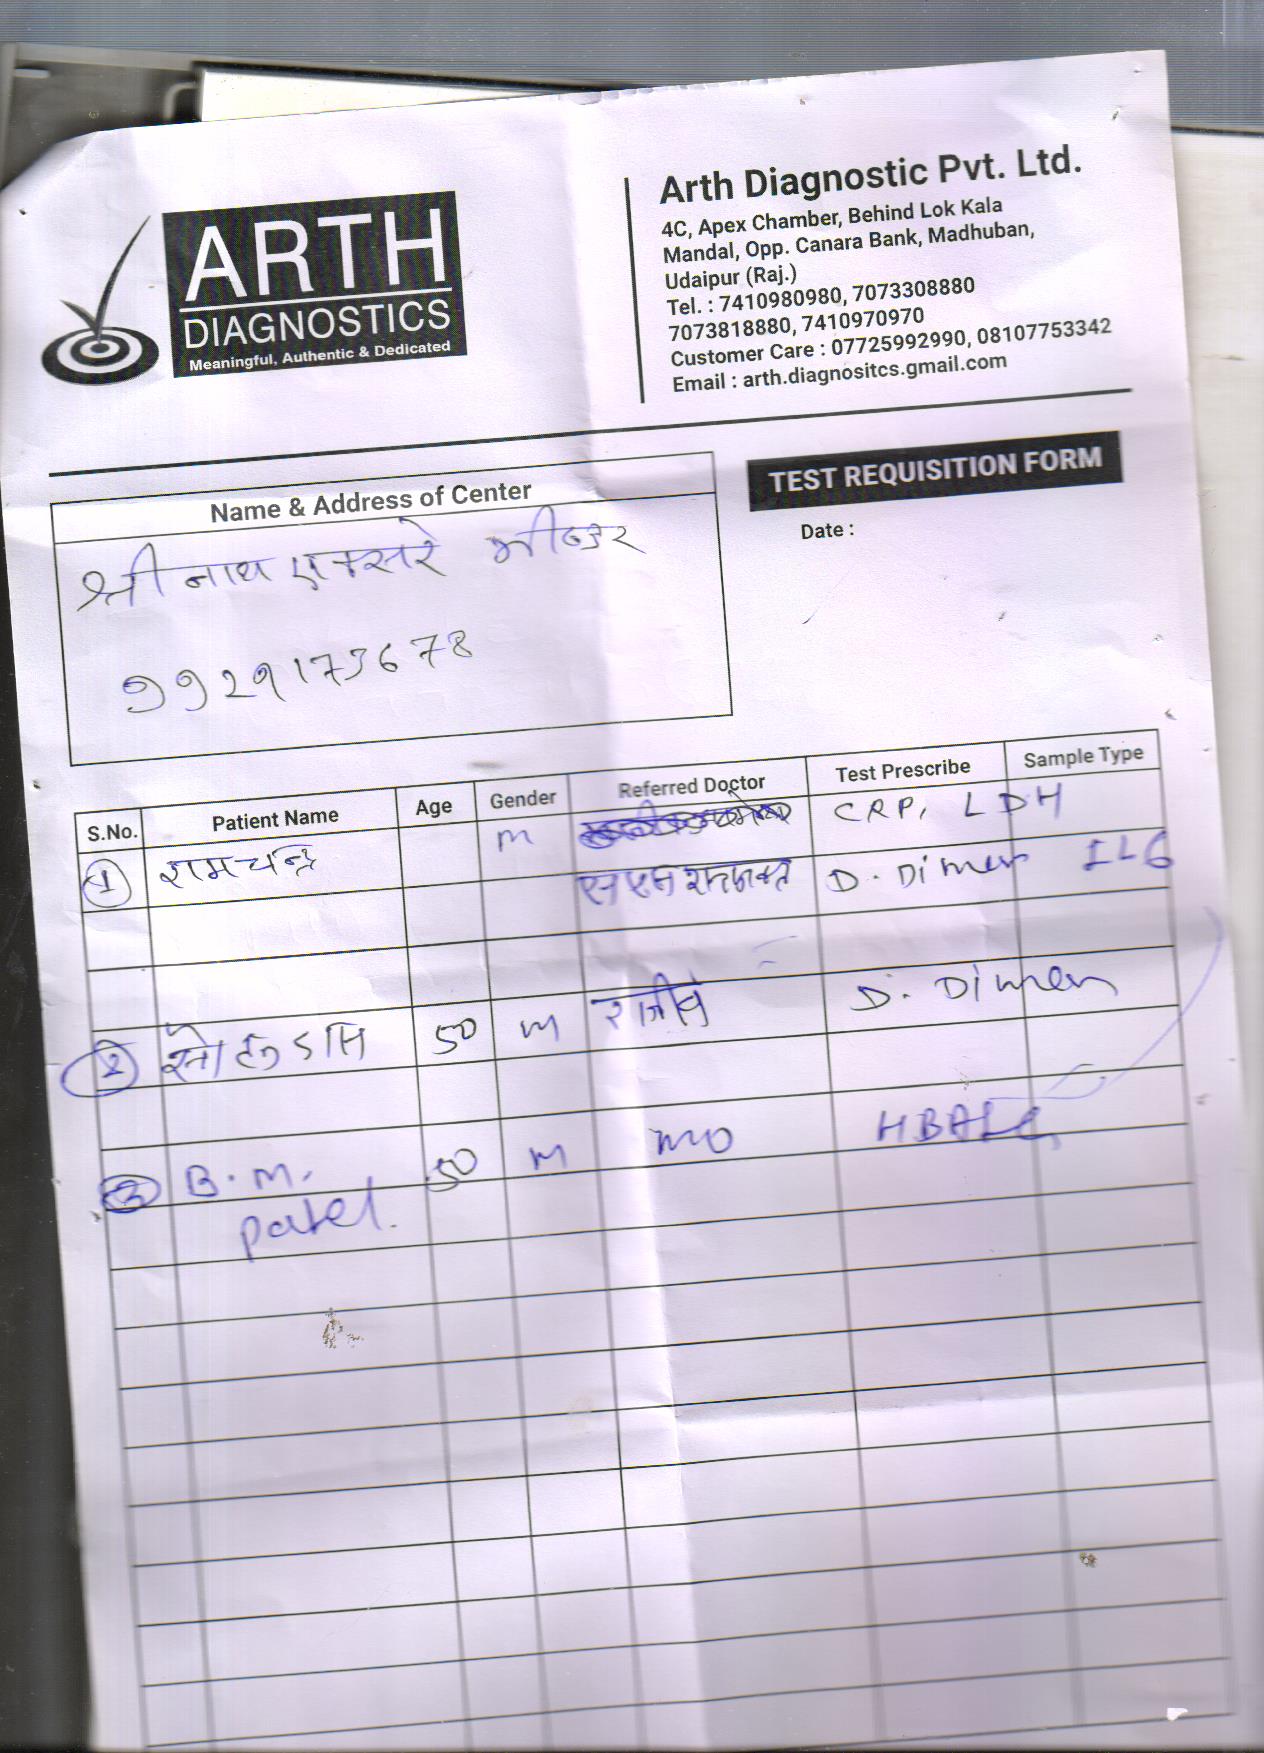 ARTH
DIAGNOSTICS
Meaningful, Authentic & Dedicated
Arth Diagnostic Pvt. Ltd.
4C, Apex Chamber, Behind Lok Kala
Mandal, Opp. Canara Bank, Madhuban,
Udaipur (Raj.)
Tel. : 7410980980, 7073308880
7073818880, 7410970970
Customer Care : 07725992990, 08107753342
Email : arth.diagnositcs.gmail.com
TEST REQUISITION FORM
Date :
Name & Address of Center
श्री नाथ एक्सरे भीण्डर
9929173678
S.No. Patient Name Age Gender Referred Doctor Test Prescribe Sample Type
1 रामचन्द्र m CRP, LDH
D. Dimer IL6
2 50 m राजीव D. Dimer
3 B.M. 50 m mo HBA1c
patel.